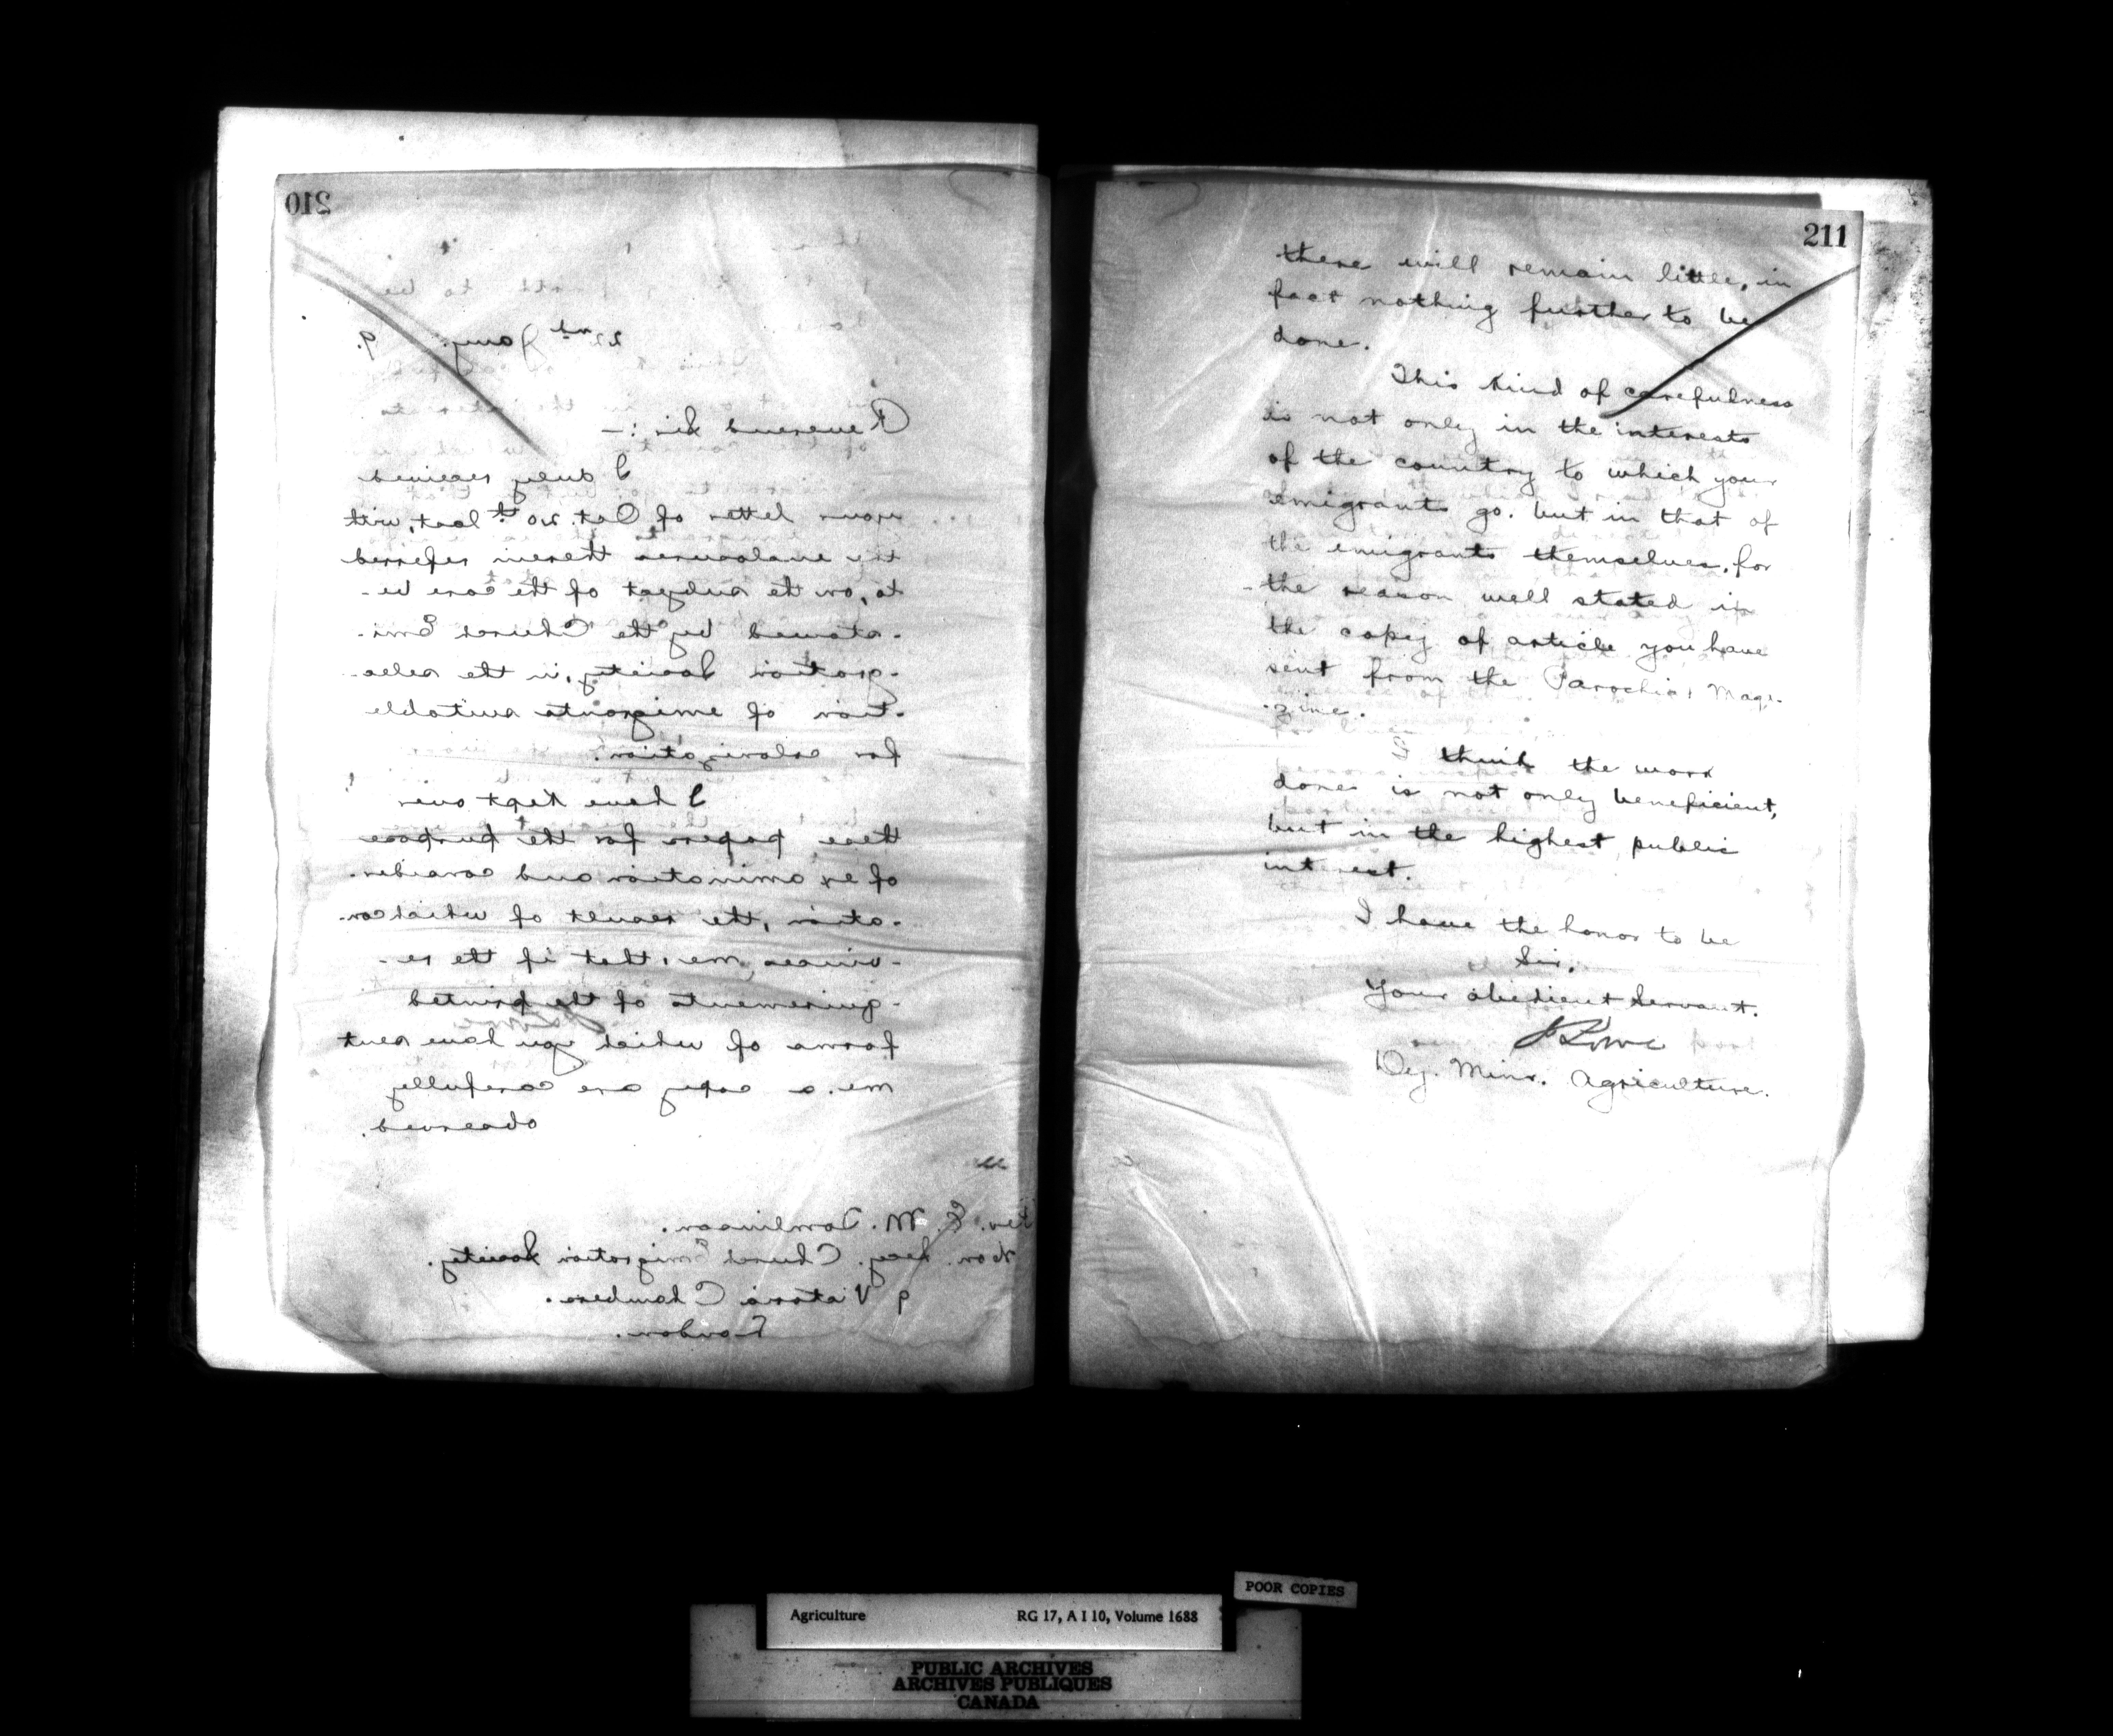 210
22nd Jany. 9.
Reverend Sir :—
I duly received
your letter of Oct. 20th last, with
the enclosures therein referred
to, on the subject of the care be-
-stowed by the Church Emi-
-gration Society, in the selec-
-tion of emigrants suitable
for colonization.
I have kept over
these papers for the purpose
of examination and consider-
-ation, the result of which con-
-vinces me, that if the re-
-quirements of the printed
forms of which you have sent
me a copy are carefully
observed.
Rev. E. M. Tomlinson.
Hon. Secy. Church Emigration Society.
9 Victoria Chambers.
London.
211
there will remain little, in
fact nothing further to be
done.
This kind of carefulness
is not only in the interests
of the country to which your
emigrants go. but in that of
the emigrants themselves, for
the reason well stated in
the copy of article you have
sent from the Parochial Maga-
-zine.
I think the work
done is not only beneficient,
but in the highest public
interest.
I have the honor to be
Sir,
Your obedient Servant.
J Lowe
Dep. Minr. Agriculture.
POOR COPIES
Agriculture RG 17, A I 10, Volume 1688
PUBLIC ARCHIVES
ARCHIVES PUBLIQUES
CANADA